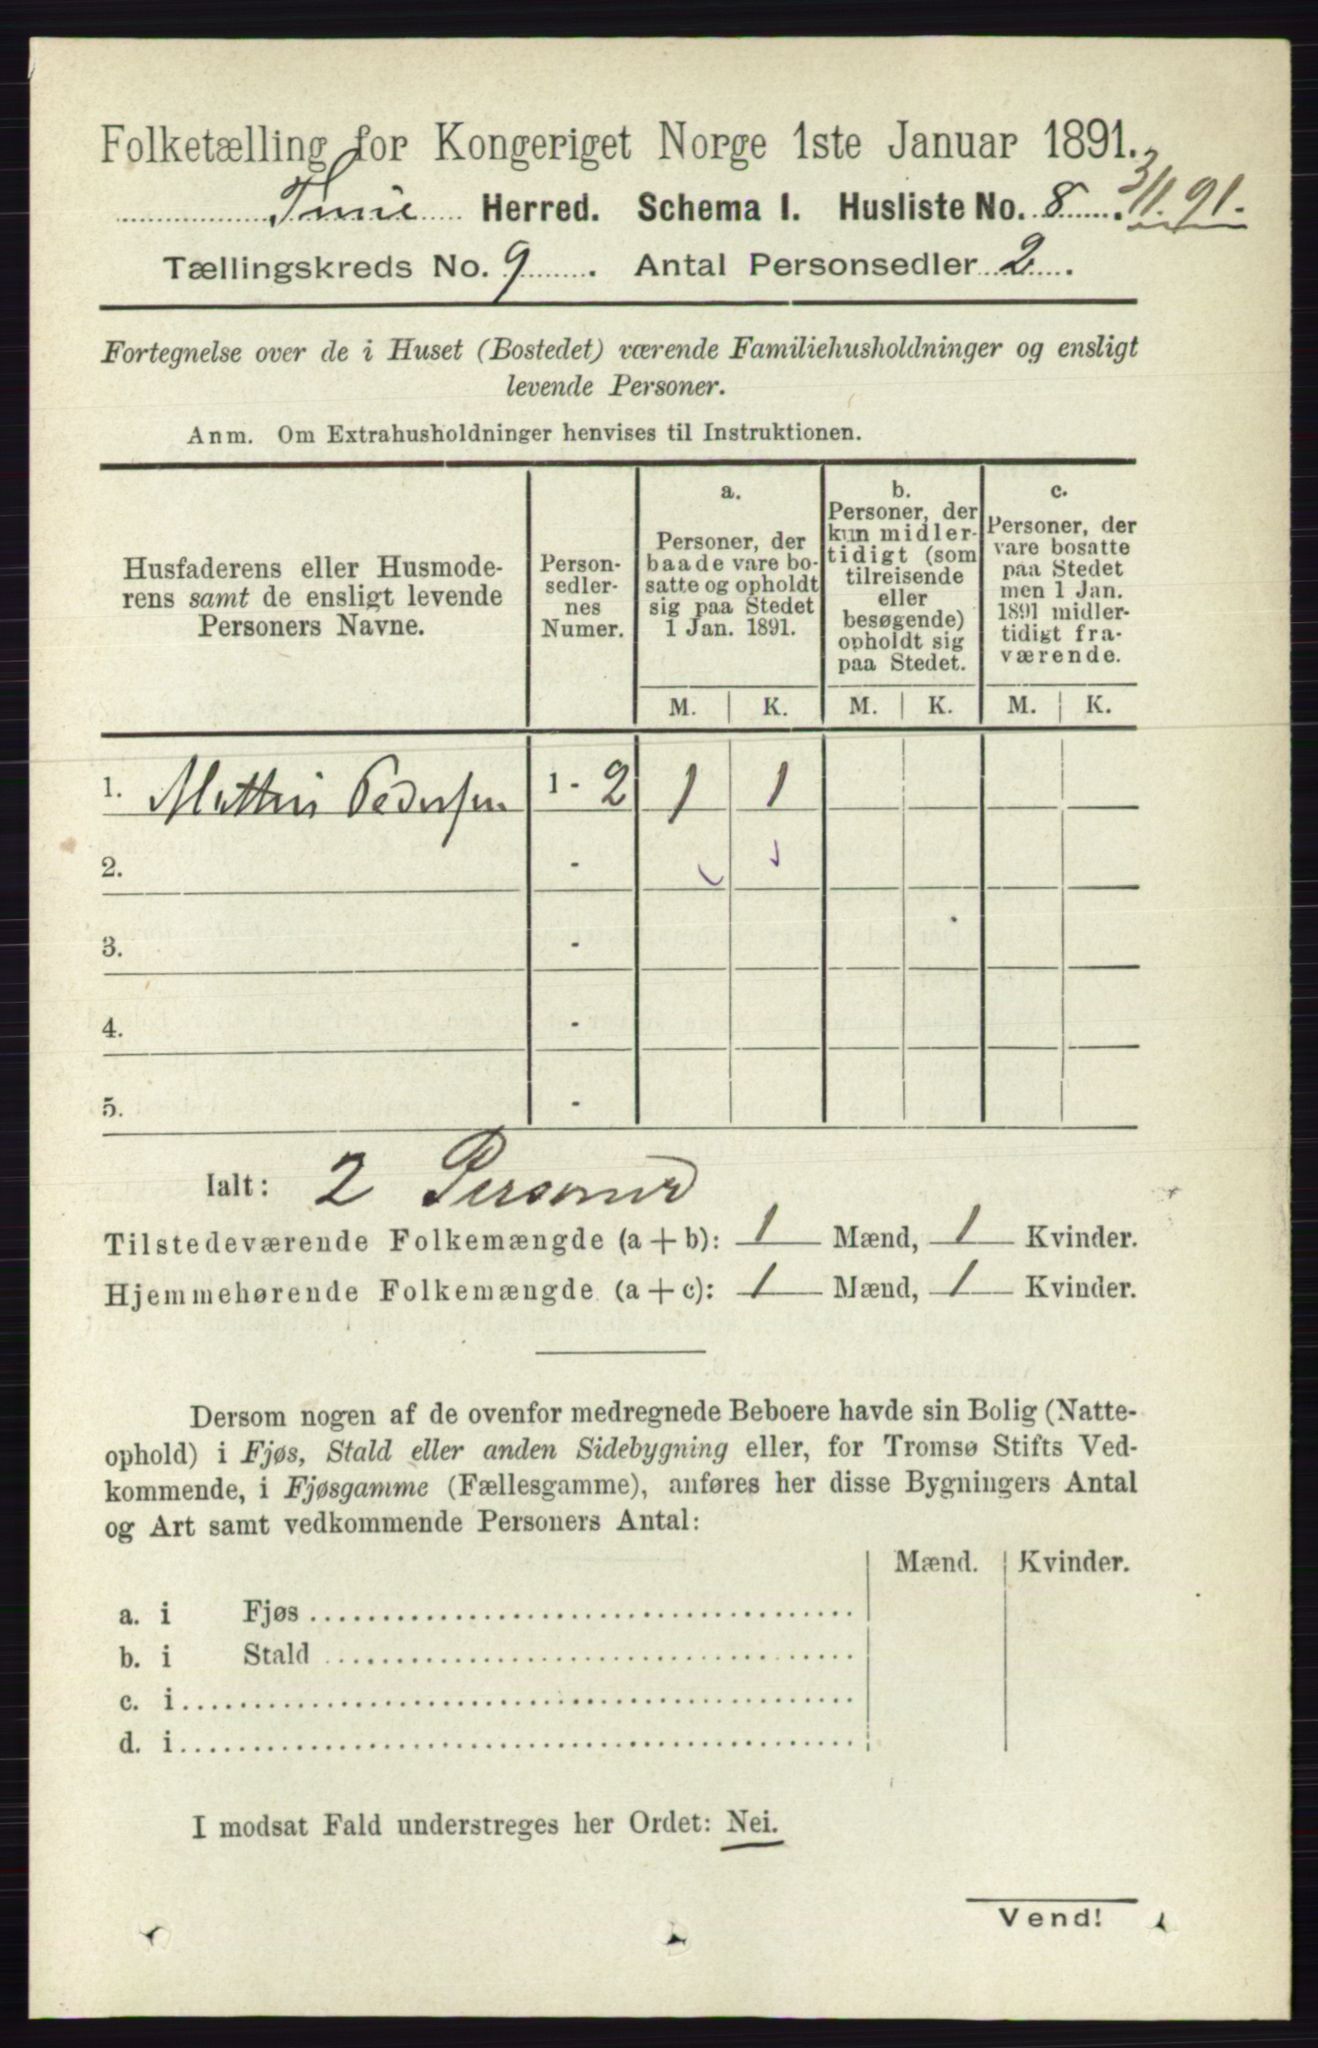 Folketælling for Kongeriget Norge 1ste Januar 1891.
Tune Herred. Schema I. Husliste No. 8. 3/1. 91.
Tællingskreds No. 9. Antal Personsedler 2.
Fortegnelse over de i Huset (Bostedet) værende Familiehusholdninger og ensligt
levende Personer.
Anm. Om Extrahusholdninger henvises til Instruktionen.
Husfaderens eller Husmode-
rens samt de ensligt levende
Personers Navne.
Person-
sedler-
nes
Numer.
a.
Personer, der
baade vare bo-
satte og opholdt
sig paa Stedet
1 Jan. 1891.
b.
Personer, der
kun midler-
tidigt (som
tilreisende
eller
besøgende)
opholdt sig
paa Stedet.
c.
Personer, der
vare bosatte
paa Stedet
men 1 Jan.
1891 midler-
tidigt fra-
værende.
M. K. M. K. M. K.
1. Pedersen 1 - 2 1 1
2. -
3. -
4. -
5. -
Ialt: 2 Personer
Tilstedeværende Folkemængde (a + b): 1 Mænd, 1 Kvinder.
Hjemmehørende Folkemængde (a + c): 1 Mænd, 1 Kvinder.
Dersom nogen af de ovenfor medregnede Beboere havde sin Bolig (Natte-
ophold) i Fjøs, Stald eller anden Sidebygning eller, for Tromsø Stifts Ved-
kommende, i Fjøsgamme (Fællesgamme), anføres her disse Bygningers Antal
og Art samt vedkommende Personers Antal:
Mænd. Kvinder.
a. i Fjøs
b. i Stald
c. i
d. i
I modsat Fald understreges her Ordet: Nei.
Vend!